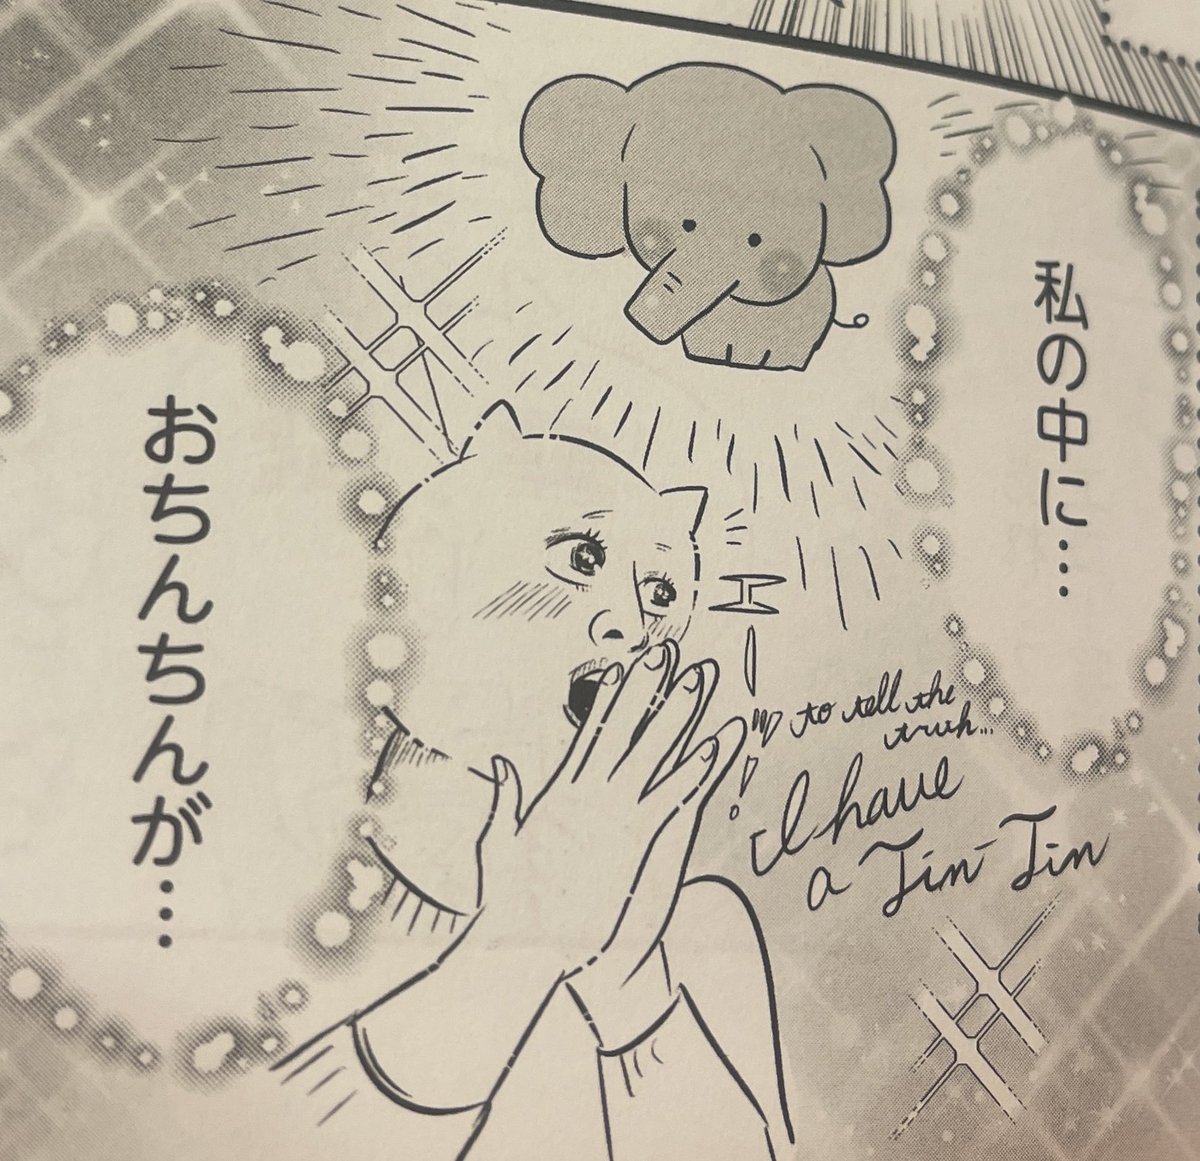 私の中に…
おちんちんが…
エーッ!
to tell the
truth...
I have
a Tin-Tin